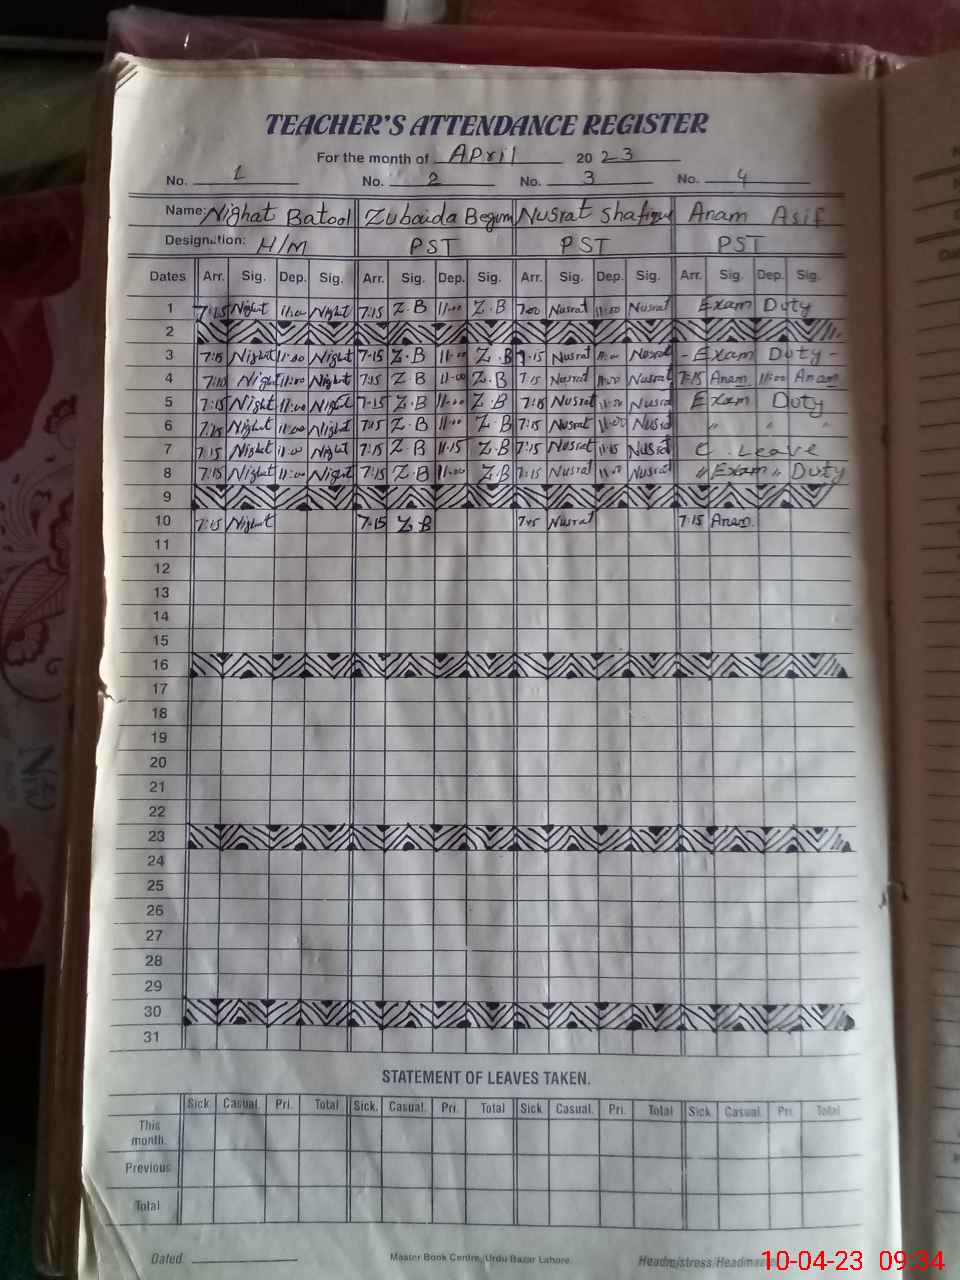 TEACHER'S ATTENDANCE REGISTER
For the month of April 20 23
No. 1 No. 2 No. 3 No. 4
Name: Nighat Batool Zubaida Begum Nusrat Shafique Anam Asif
Designation: H/M PST PST PST
Dates Arr. Sig. Dep. Sig. Arr. Sig. Dep. Sig. Arr. Sig. Dep. Sig. Arr. Sig. Dep. Sig.
1 7:15 Nighat 11:00 Nighat 7:15 Z.B 11:00 Z.B 7:00 Nusrat 11:00 Nusrat Exam Duty
2
3 7:15 Nighat 11:00 Nighat 7-15 Z.B 11:00 Z.B 7-15 Nusrat 11:00 Nusrat - Exam Duty -
4 7:10 Nighat 11:00 Nighat 7:15 Z B 11-00 Z.B 7:15 Nusrat 11:00 Nusrat 7:15 Anam 11:00 Anam
5 7:15 Nighat 11:00 Nighat 7-15 Z.B 11:00 Z.B 7:15 Nusrat 11:00 Nusrat Exam Duty
6 7:15 Nighat 11:00 Nighat 7:15 Z.B 11:00 Z.B 7:15 Nusrat 11:00 Nusrat " " "
7 7:15 Nighat 11:00 Nighat 7:15 Z B 11-15 Z.B 7:15 Nusrat 11:15 Nusrat C. Leave
8 7:15 Nighat 11:00 Nighat 7:15 Z.B 11:00 Z.B 7:15 Nusrat 11:00 Nusrat " Exam " Duty
9
10 7:15 Nighat 7-15 Z B 7:15 Nusrat 7:15 Anam
11
12
13
14
15
16
17
18
19
20
21
22
23
24
25
26
27
28
29
30
31
STATEMENT OF LEAVES TAKEN.
Sick Casual. Pri. Total Sick. Casual. Pri. Total Sick Casual. Pri. Total Sick Casual. Pri. Total
This
month.
Previous
Total
Dated. Master Book Centre, Urdu Bazar Lahore. Headmistress/Headmaster
10-04-23 09:34